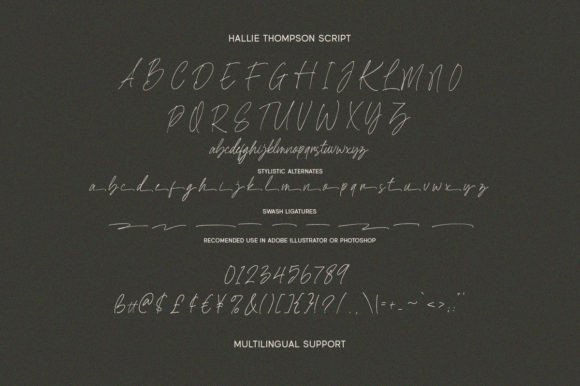 HALLIE THOMPSON SCRIPT
A B C D E F G H I J K L M N O
P Q R S T U V W X Y Z
abcdefghijklmnopqrstuvwxyz
STYLISTIC ALTERNATES
a b c d e f g h i j k l m n o p q r s t u v w x y z
SWASH LIGATURES
RECOMENDED USE IN ADOBE ILLUSTRATOR OR PHOTOSHOP
0123456789
#@$£¢€¥%&()[]{}?/.,\|=+_~`<>;:"'
MULTILINGUAL SUPPORT